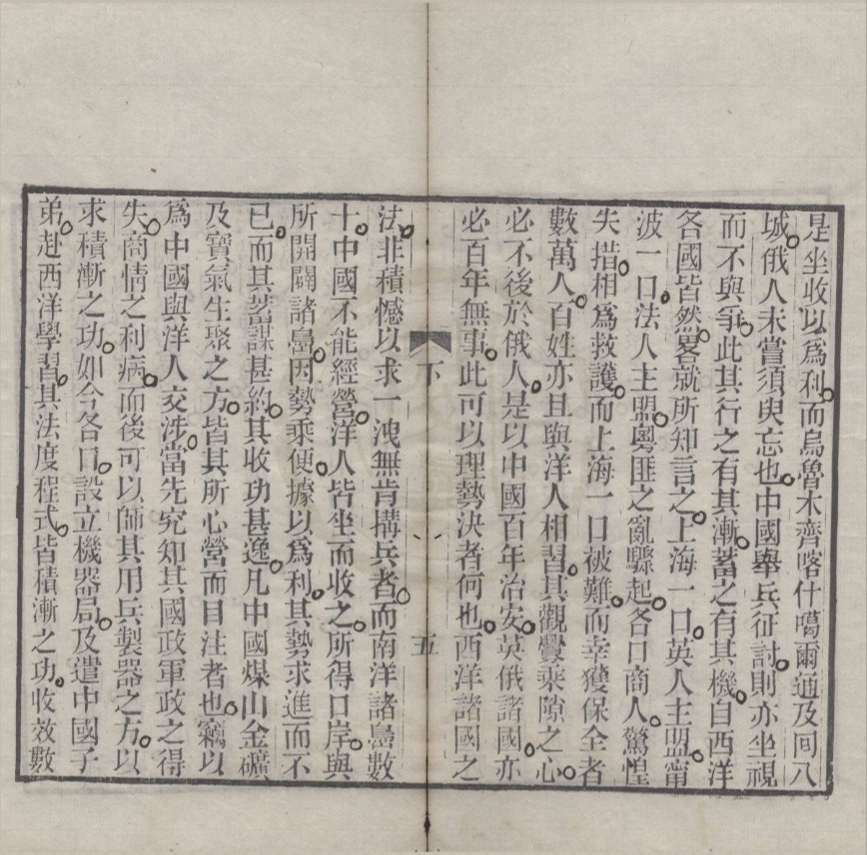 是坐收以爲利。而烏魯木齊喀什噶爾通及同八
城。俄人未嘗須臾忘也。中國舉兵征討。則亦坐視
而不與爭。此其行之有其漸。蓄之有其機。自西洋
各國皆然。畧就所知言之。上海一口。英人主盟。甯
波一口。法人主盟。粵匪之亂驟起。各口商人。驚惶
失措。相爲救護。而上海一口被難。而幸獲保全者
數萬人。百姓亦且與洋人相習。其觀釁乘隙之心。
必不後於俄人。是以中國百年治安。英俄諸國。亦
必百年無事。此可以理勢決者何也。西洋諸國之
下
五
法。非積憾以求一洩無肯搆兵者。而南洋諸島數
十。中國不能經營。洋人皆坐而收之。所得口岸。與
所開闢諸島。因勢乘便。據以爲利。其勢求進而不
已。而其蓄謀甚約。其收功甚逸。凡中國煤山金礦
及寶氣生聚之方。皆其所心營而目注者也。竊以
爲中國與洋人交涉。當先究知其國政軍政之得
失。商情之利病。而後可以師其用兵製器之方。以
求積漸之功。如今各口。設立機器局。及遣中國子
弟。赴西洋學習。其法度程式。皆積漸之功。收效數